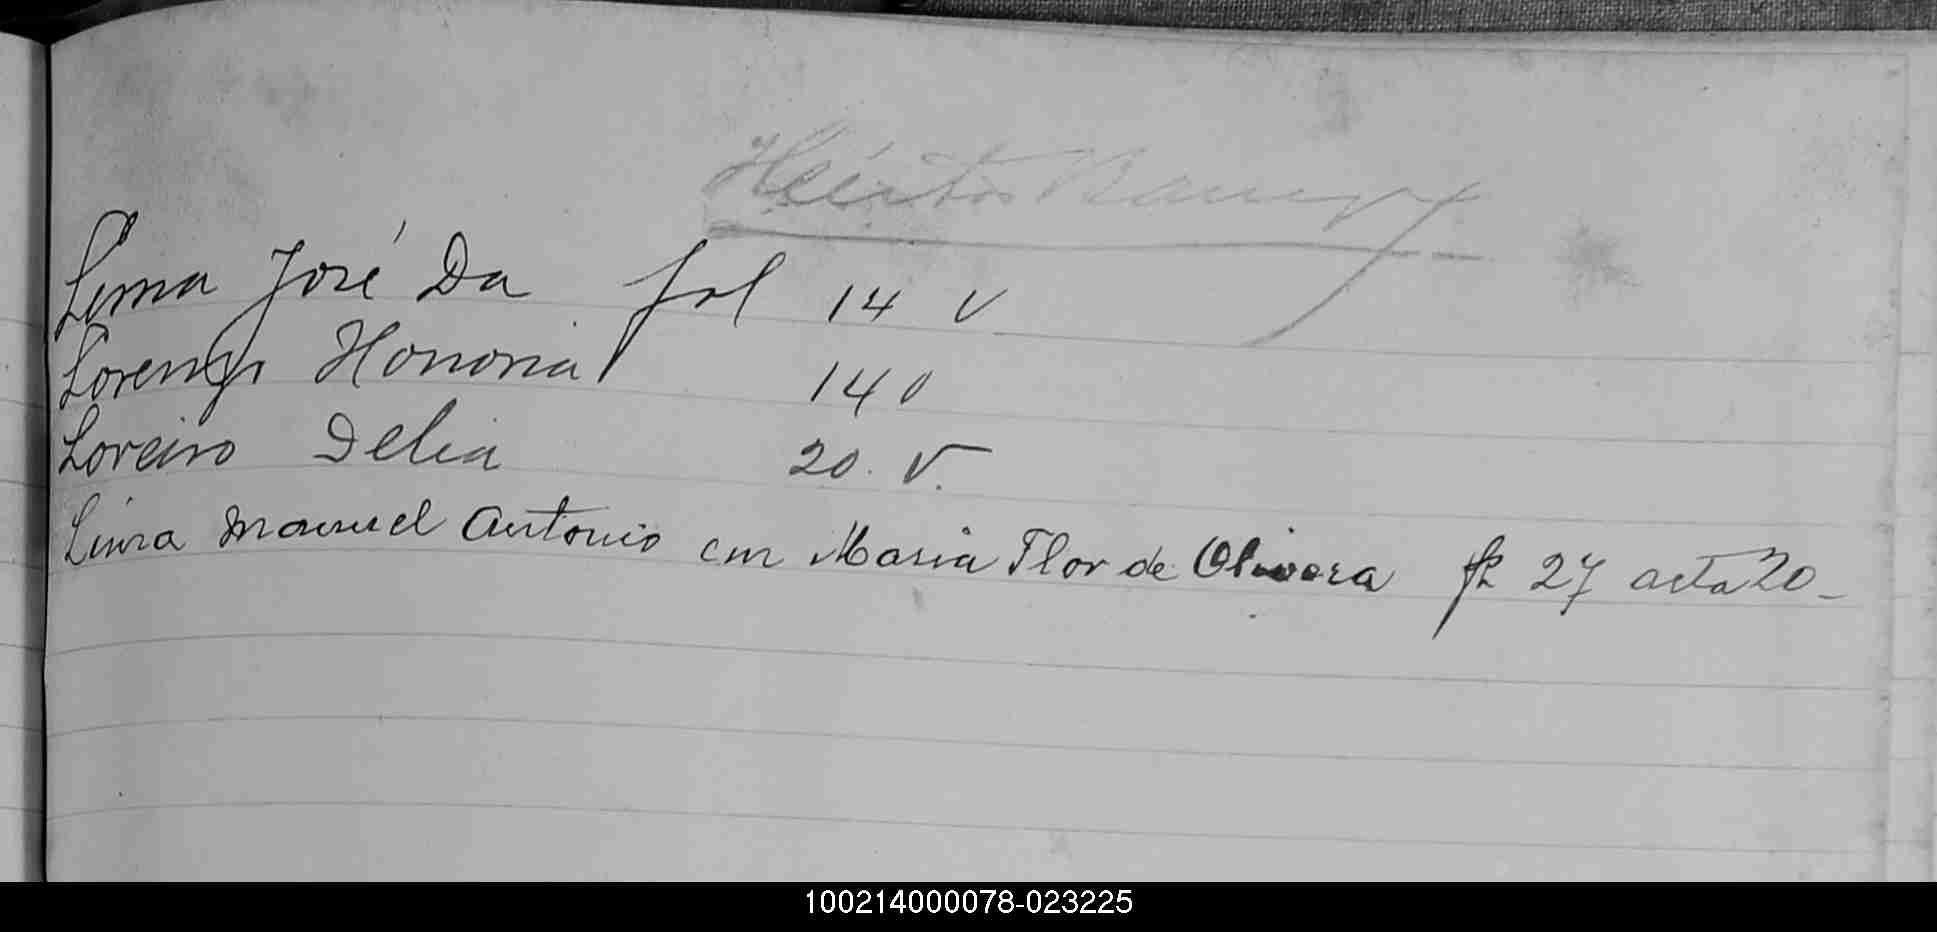 Lima José Da fol 14 v
Lorenzo Honoria 14 v
Loreiro Delia 20. V.
Lima Manuel Antonio con Maria Flor de Olivera fs 27 acta 20 –
100214000078-023225